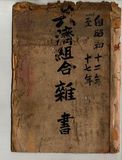 自昭和十二年
至　十七年
共濟組合雜書